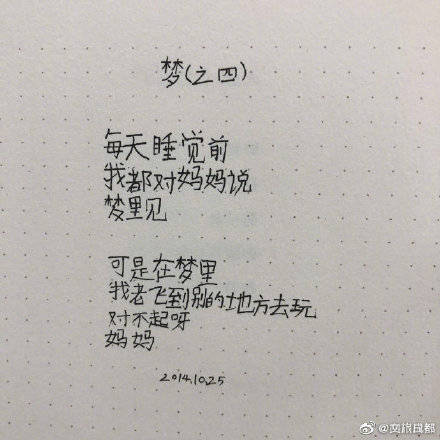 梦(之四)
每天睡觉前
我都对妈妈说
梦里见
可是在梦里
我老飞到别的地方去玩
对不起呀
妈妈
2014.10.25
@文旅成都